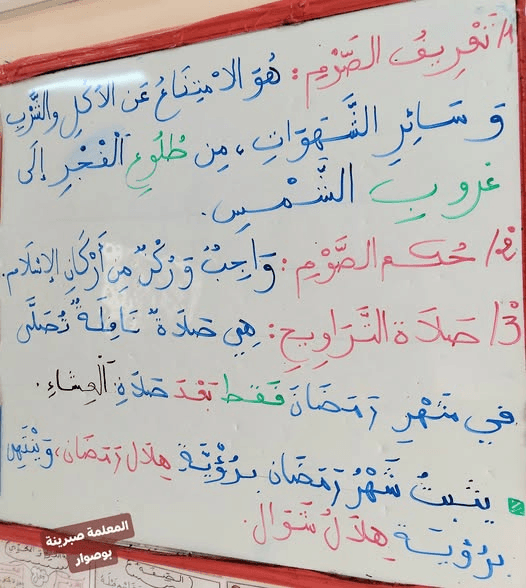 1/ تَعْرِيفُ الصَّوْمِ: هُوَ الاِمْتِنَاعُ عَنِ الأَكْلِ والشُّرْبِ
وَ سَائِرِ الشَّهَوَاتِ، مِن طُلُوعِ الْفَجْرِ إِلَى
غُرُوبِ الشَّمْسِ.
2/ حُكم الصَّوْمِ: وَاجِبٌ وَ رُكْنٌ مِنْ أَرْكَانِ الإِسْلَام.
3/ صَلَاة التَّرَاوِيحِ: هِيَ صَلَاةٌ نَافِلَةٌ تُصَلَّى
في شَهْرِ رَمَضَانَ فَقَط بَعْدَ صَلَاةِ الْعِشَاءِ.
يَثْبتُ شَهْرُ رَمَضَان بِرُؤْيَة هِلَال رَمَضَان، وَيَنْتَهِي
بِرُؤْيَة هِلَالُ شَوَّال.
المعلمة صبرينة
بوصوار